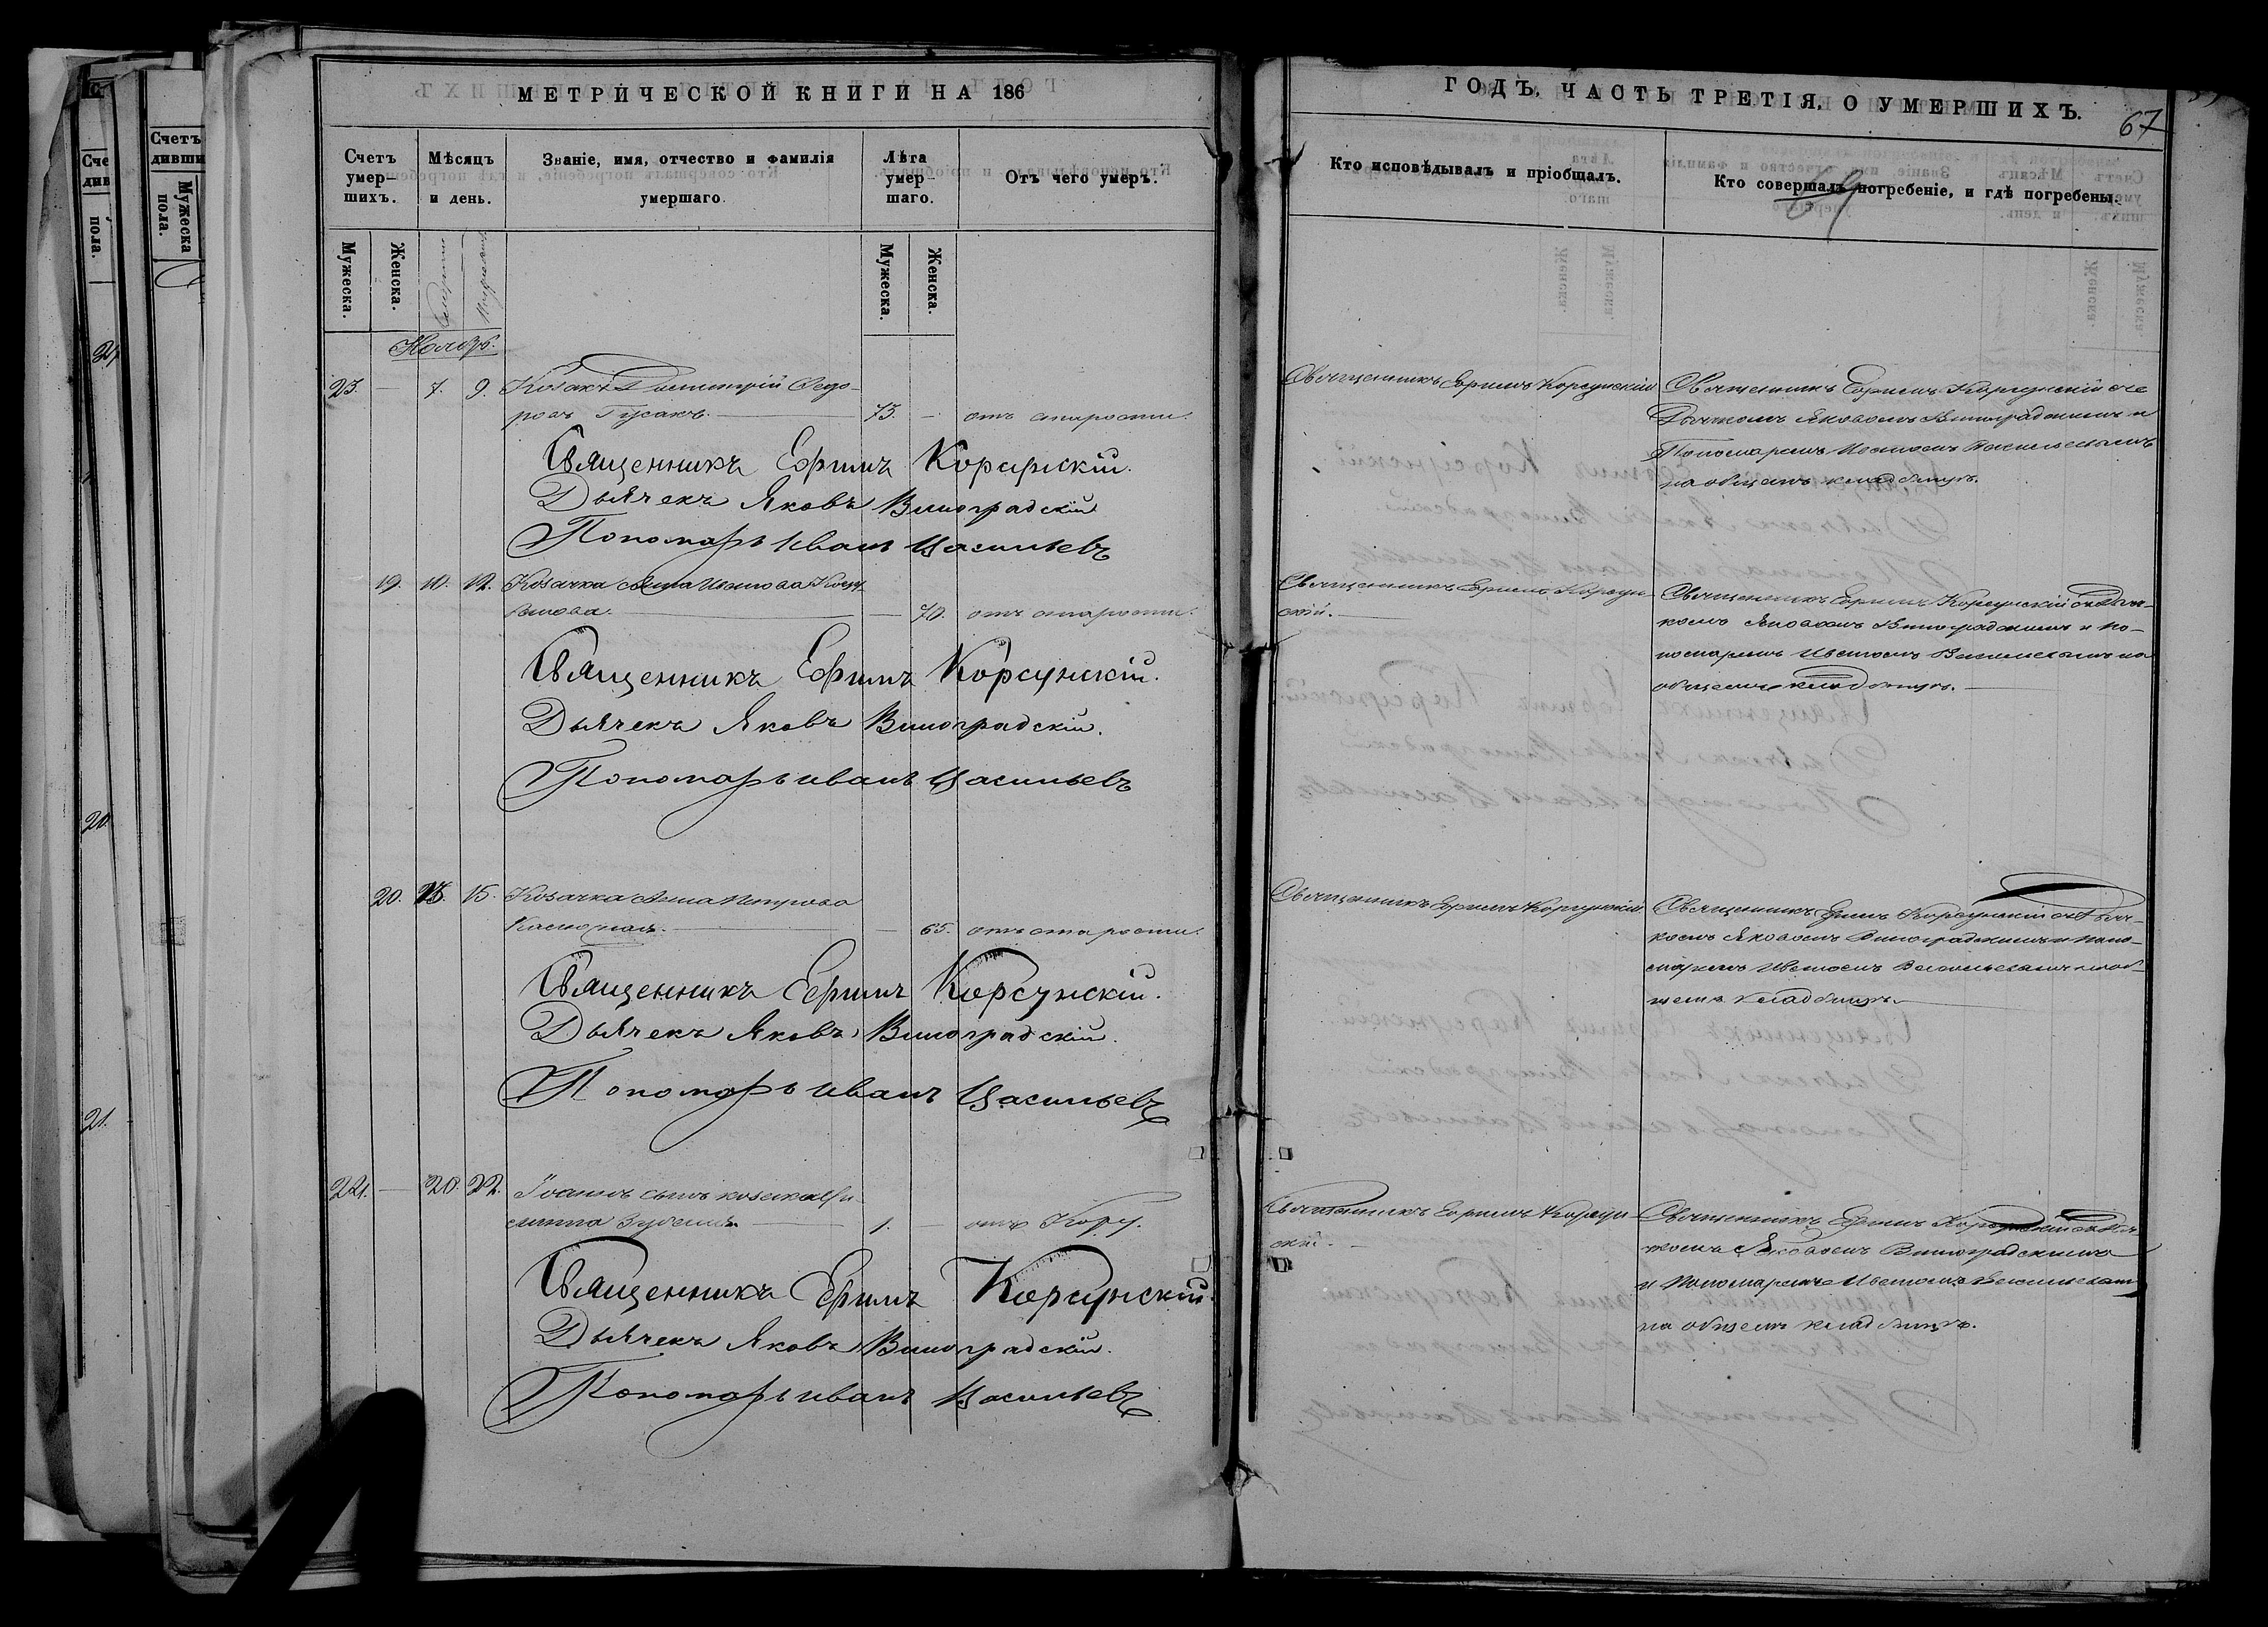 МЕТРИЧЕСКОЙ КНИГИ НА 186
Счетъ умер-шихъ.
Мѣсяцъ и день.
Званіе, имя, отчество и фамилія умершаго.
Лѣта умер-шаго.
Отъ чего умеръ.
Мужеска.
Женска.
Мужеска.
Женска.
Ноябрь.
23. — 7. 9. Козакъ Димитрій Ѳедо-
ровъ Гусакъ. — 73. — отъ старости.
Священникъ Ефимъ Корсунскій.
Дьячекъ Яковъ Виноградскій
Пономарь Иванъ Васильевъ
19. 10. 12. Козачка Анна Иванова
— 70. отъ старости.
Священникъ Ефимъ Корсунскій.
Дьячекъ Яковъ Виноградскій.
Пономарь Иванъ Васильевъ
20. 13. 15. Козачка Анна Петрова
— 65. отъ старости.
Священникъ Ефимъ Корсунскій.
Дьячекъ Яковъ Виноградскій.
Пономарь Иванъ Васильевъ
24. — 20. 22. Іоаннъ сынъ козака
1. — отъ Кору.
Священникъ Ефимъ Корсунскій.
Дьячекъ Яковъ Виноградскій.
Пономарь Иванъ Васильевъ
ГОДЪ, ЧАСТЬ ТРЕТІЯ, О УМЕРШИХЪ.
67
Кто исповѣдывалъ и пріобщалъ.
Кто совершалъ погребеніе, и гдѣ погребены.
Священникъ Ефимъ Корсунскій
Священникъ Ефимъ Корсунскій съ
Дьячкомъ Яковомъ Виноградскимъ и
Пономаремъ Иваномъ Васильевымъ
на общемъ кладбищѣ.
Священникъ Ефимъ Корсун-
скій.
Священникъ Ефимъ Корсунскій съ Дьяч-
комъ Яковомъ Виноградскимъ и по-
номаремъ Иваномъ Васильевымъ на
общемъ кладбищѣ.
Священникъ Ефимъ Корсунскій
Священникъ Ефимъ Корсунскій съ Дьяч-
комъ Яковомъ Виноградскимъ и поно-
маремъ Иваномъ Васильевымъ на об-
щемъ кладбищѣ.
Священникъ Ефимъ Корсун-
скій.
Священникъ Ефимъ Корсунскій съ Дьяч-
комъ Яковомъ Виноградскимъ
и Пономаремъ Иваномъ Васильевымъ
на общемъ кладбищѣ.
Счетъ
дивши
Мужеска пола.
пола.
20.
21.